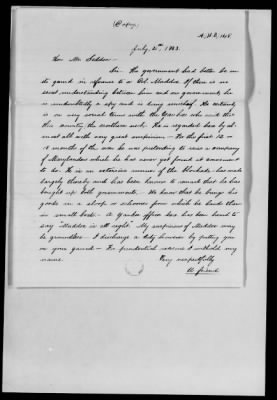 Copy.
July, 21st, 1863.
Hon. Mr. Seddon -
Sir. The government had better be on
its guard in reference to a Col. Maddox. If there is no
secret understanding between him and our government, he
is undoubtedly a spy and is being . He certainly
is on very social terms with the Yankees who visit this
this country the northern neck. He is regarded here by al-
most all with very great suspicion - For the first 12 or
months of the war he was pretending to raise a company
of Marylanders which he has never yet found it convenient
to do. He is an extensive runner of the blockade - has made
largely thereby and has been known to remark that he has
bought up both governments. We know that he brings his
goods in a sloop or schooner from which he lands them
in small boats - A Yankee officer has been heard to
say "Maddox is all right". My suspicions of Maddox may
be groundless - I discharge a duty however by putting you
on your guard - For prudential reasons I withhold my
name.
Very respectfully
A friend